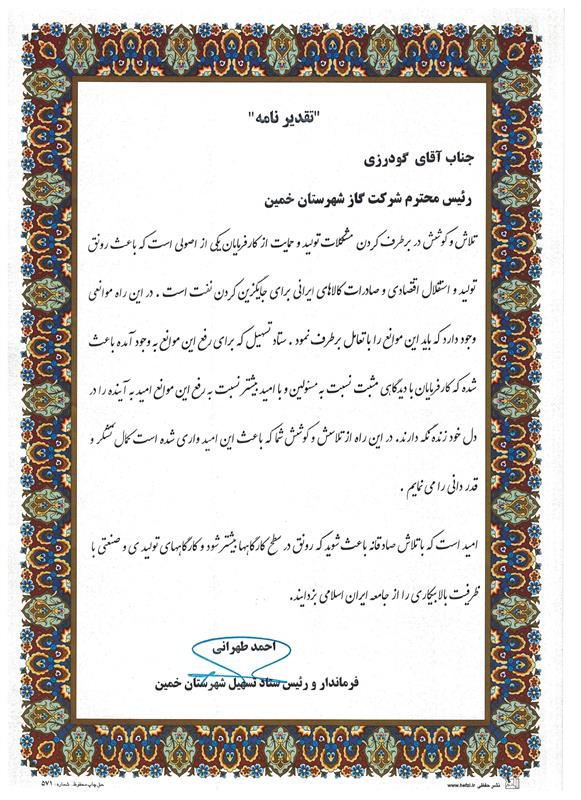 "تقدیر نامه"
جناب آقای گودرزی
رئیس محترم شرکت گاز شهرستان خمین
تلاش و کوشش در برطرف کردن مشکلات تولید و حمایت از کارفرمایان یکی از اصولی است که باعث رونق
تولید و استقلال اقتصادی و صادرات کالاهای ایرانی برای جایگزین کردن نفت است . در این راه موانعی
وجود دارد که باید این موانع را با تعامل برطرف نمود . ستاد تسهیل که برای رفع این موانع به وجود آمده باعث
شده که کارفرمایان با دیدگاهی مثبت نسبت به مسئولین و با امید بیشتر نسبت به رفع این موانع امید به آینده را در
دل خود زنده نگه دارند. در این راه از تلاش و کوشش شما که باعث این امید واری شده است کمال تشکر و
قدر دانی را می نمایم .
امید است که با تلاش صادقانه باعث شوید که رونق در سطح کارگاهها بیشتر شود و کارگاههای تولیدی و صنعتی با
ظرفیت بالا بیکاری را از جامعه ایران اسلامی بزدایند.
احمد طهرانی
فرماندار و رئیس ستاد تسهیل شهرستان خمین
نشر حفظی www.hefzi.ir
حق چاپ محفوظ. شماره: ۵۷۱